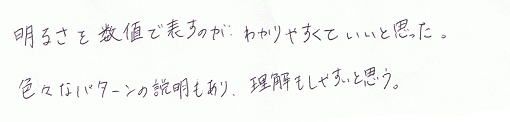 明るさを数値で表すのがわかりやすくていいと思った。
色々なパターンの説明もあり、理解もしやすいと思う。